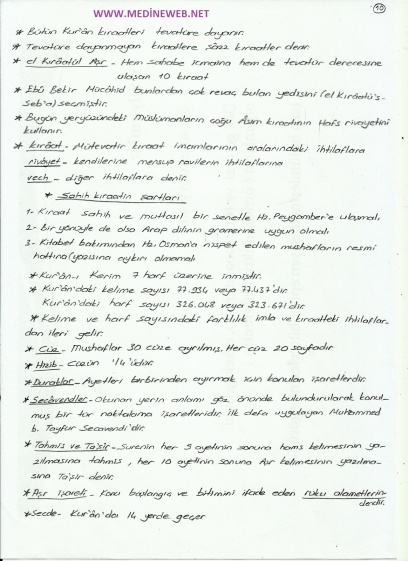 www.MEDİNEWEB.NET
10
* Bütün Kur'ân kıraatleri tevatüre dayanır.
* Tevatüre dayanmayan kıraatlere şâzz kıraatler denir.
* el Kırâatül Aşr - Hem sahabe icmaına hem de tevatür derecesine
ulaşan 10 kıraat
* Ebû Bekir Mücâhid bunlardan çok revaç bulan yedisini (el Kırâatü's-
seb'a) seçmiştir.
* Bugün yeryüzündeki müslümanların çoğu Âsım kıraatinin Hafs rivayetini
kullanır.
* kırâat - Mütevatir kıraat imamlarının aralarındaki ihtilaflara
rivâyet - kendilerine mensup ravilerin ihtilaflarına
vech - diğer ihtilaflara denir.
* Sahih kıraatin şartları
1- Kıraat sahih ve muttasıl bir senetle Hz. Peygamber'e ulaşmalı
2- bir yönüyle de olsa Arap dilinin gramerine uygun olmalı
3- Kitabet bakımından Hz. Osman'a nispet edilen mushafların resmi
hattına (yazısına aykırı olmamalı
* Kur'ân-ı Kerim 7 harf üzerine inmiştir.
* Kur'ân'daki kelime sayısı 77.934 veya 77.437'dir.
Kur'ân'daki harf sayısı 326.048 veya 323.671'dir.
* Kelime ve harf sayısındaki farklılık imla ve kıraatteki ihtilaflar-
dan ileri gelir.
* Cüz - Mushaflar 30 cüze ayrılmış. Her cüz 20 sayfadır
* Hizib - Cüzün 1/4'üdür.
* Duraklar - Ayetleri birbirinden ayırmak için konulan işaretlerdir.
* Secâvendler - Okunan yerin anlamı göz önünde bulundurularak konul-
muş bir tür noktalama işaretleridir. ilk defa uygulayan Muhammed
b. Tayfur Secavendi'dir.
* Tahmis ve Ta'şir - Surenin her 5 ayetinin sonuna hams kelimesinin ya-
zılmasına tahmis, her 10 ayetinin sonuna Aşr kelimesinin yazılma-
sına Ta'şir denir.
* Aşr işareti - Konu başlangıç ve bitimini ifade eden rukü alametlerin-
dendir.
* Secde - Kur'ân'da 14 yerde geçer